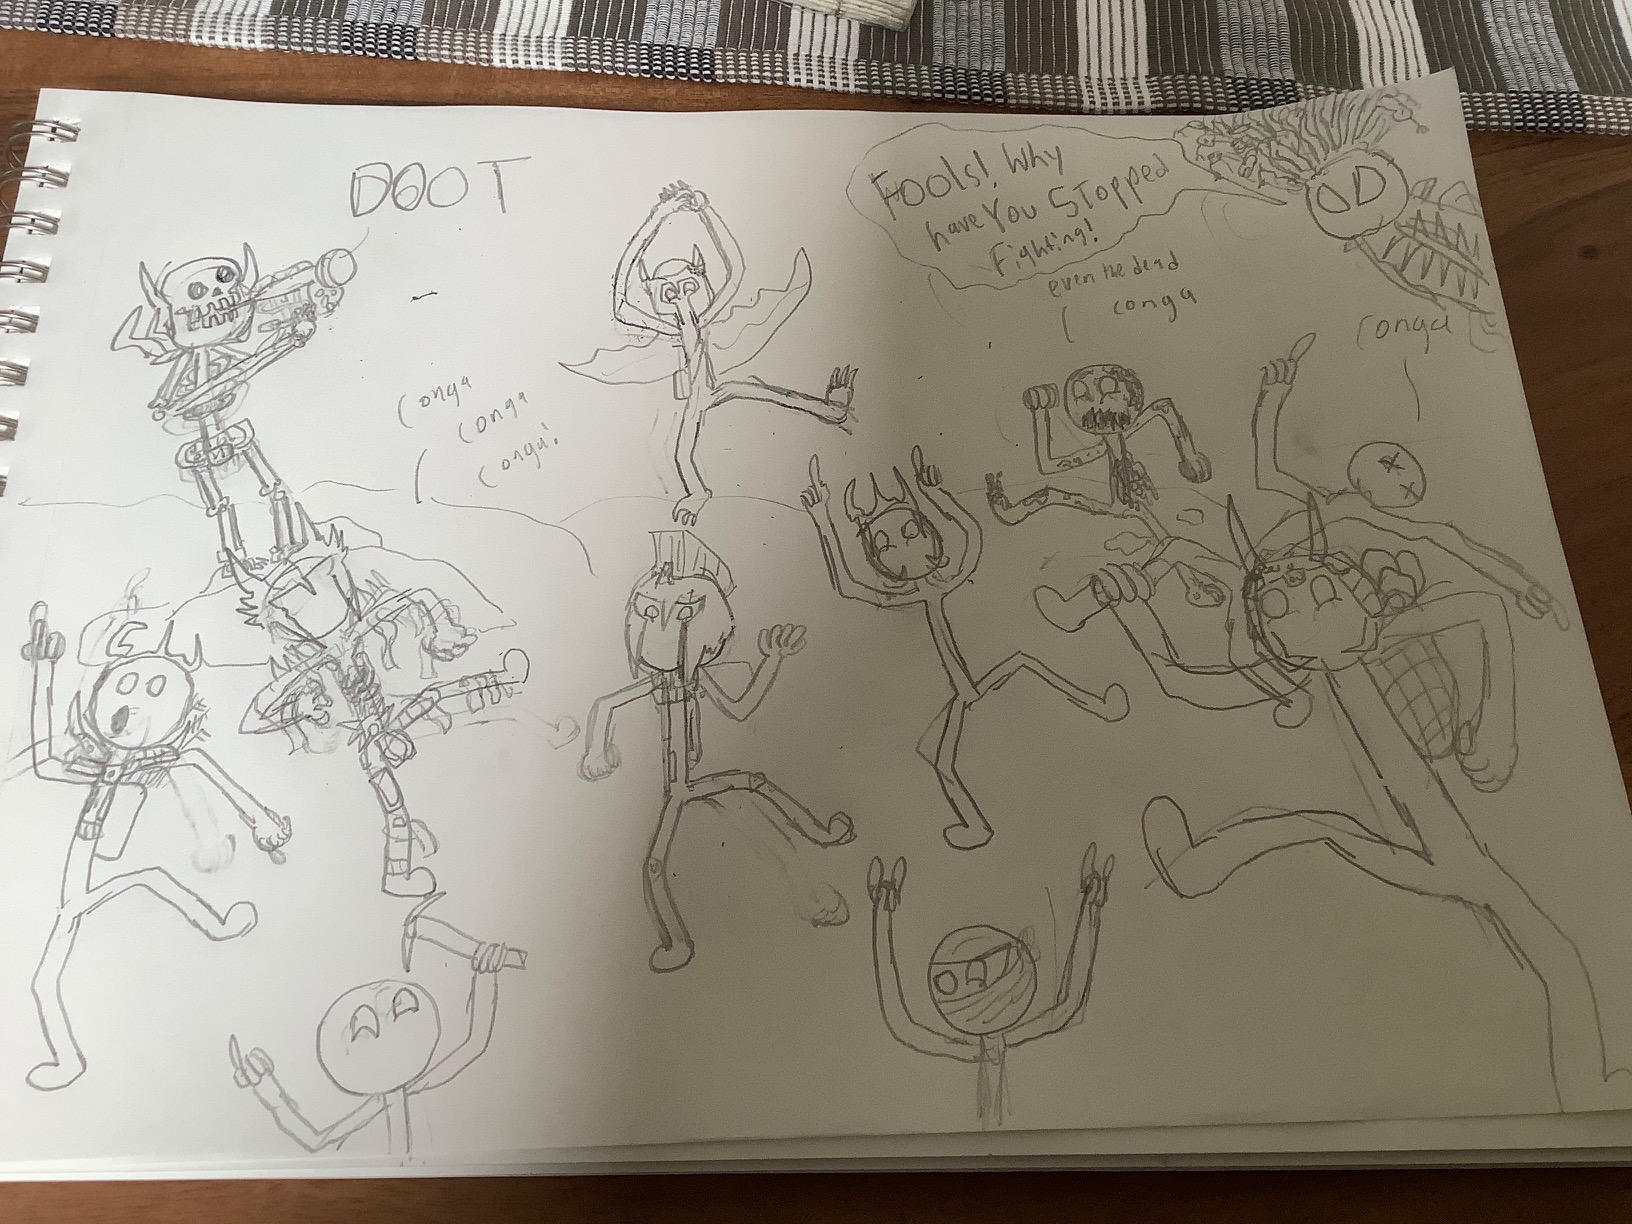 DOOT
FOOLS! Why
have You STOPPed
Fighting!
even the dead
conga
conga
conga
conga
conga!